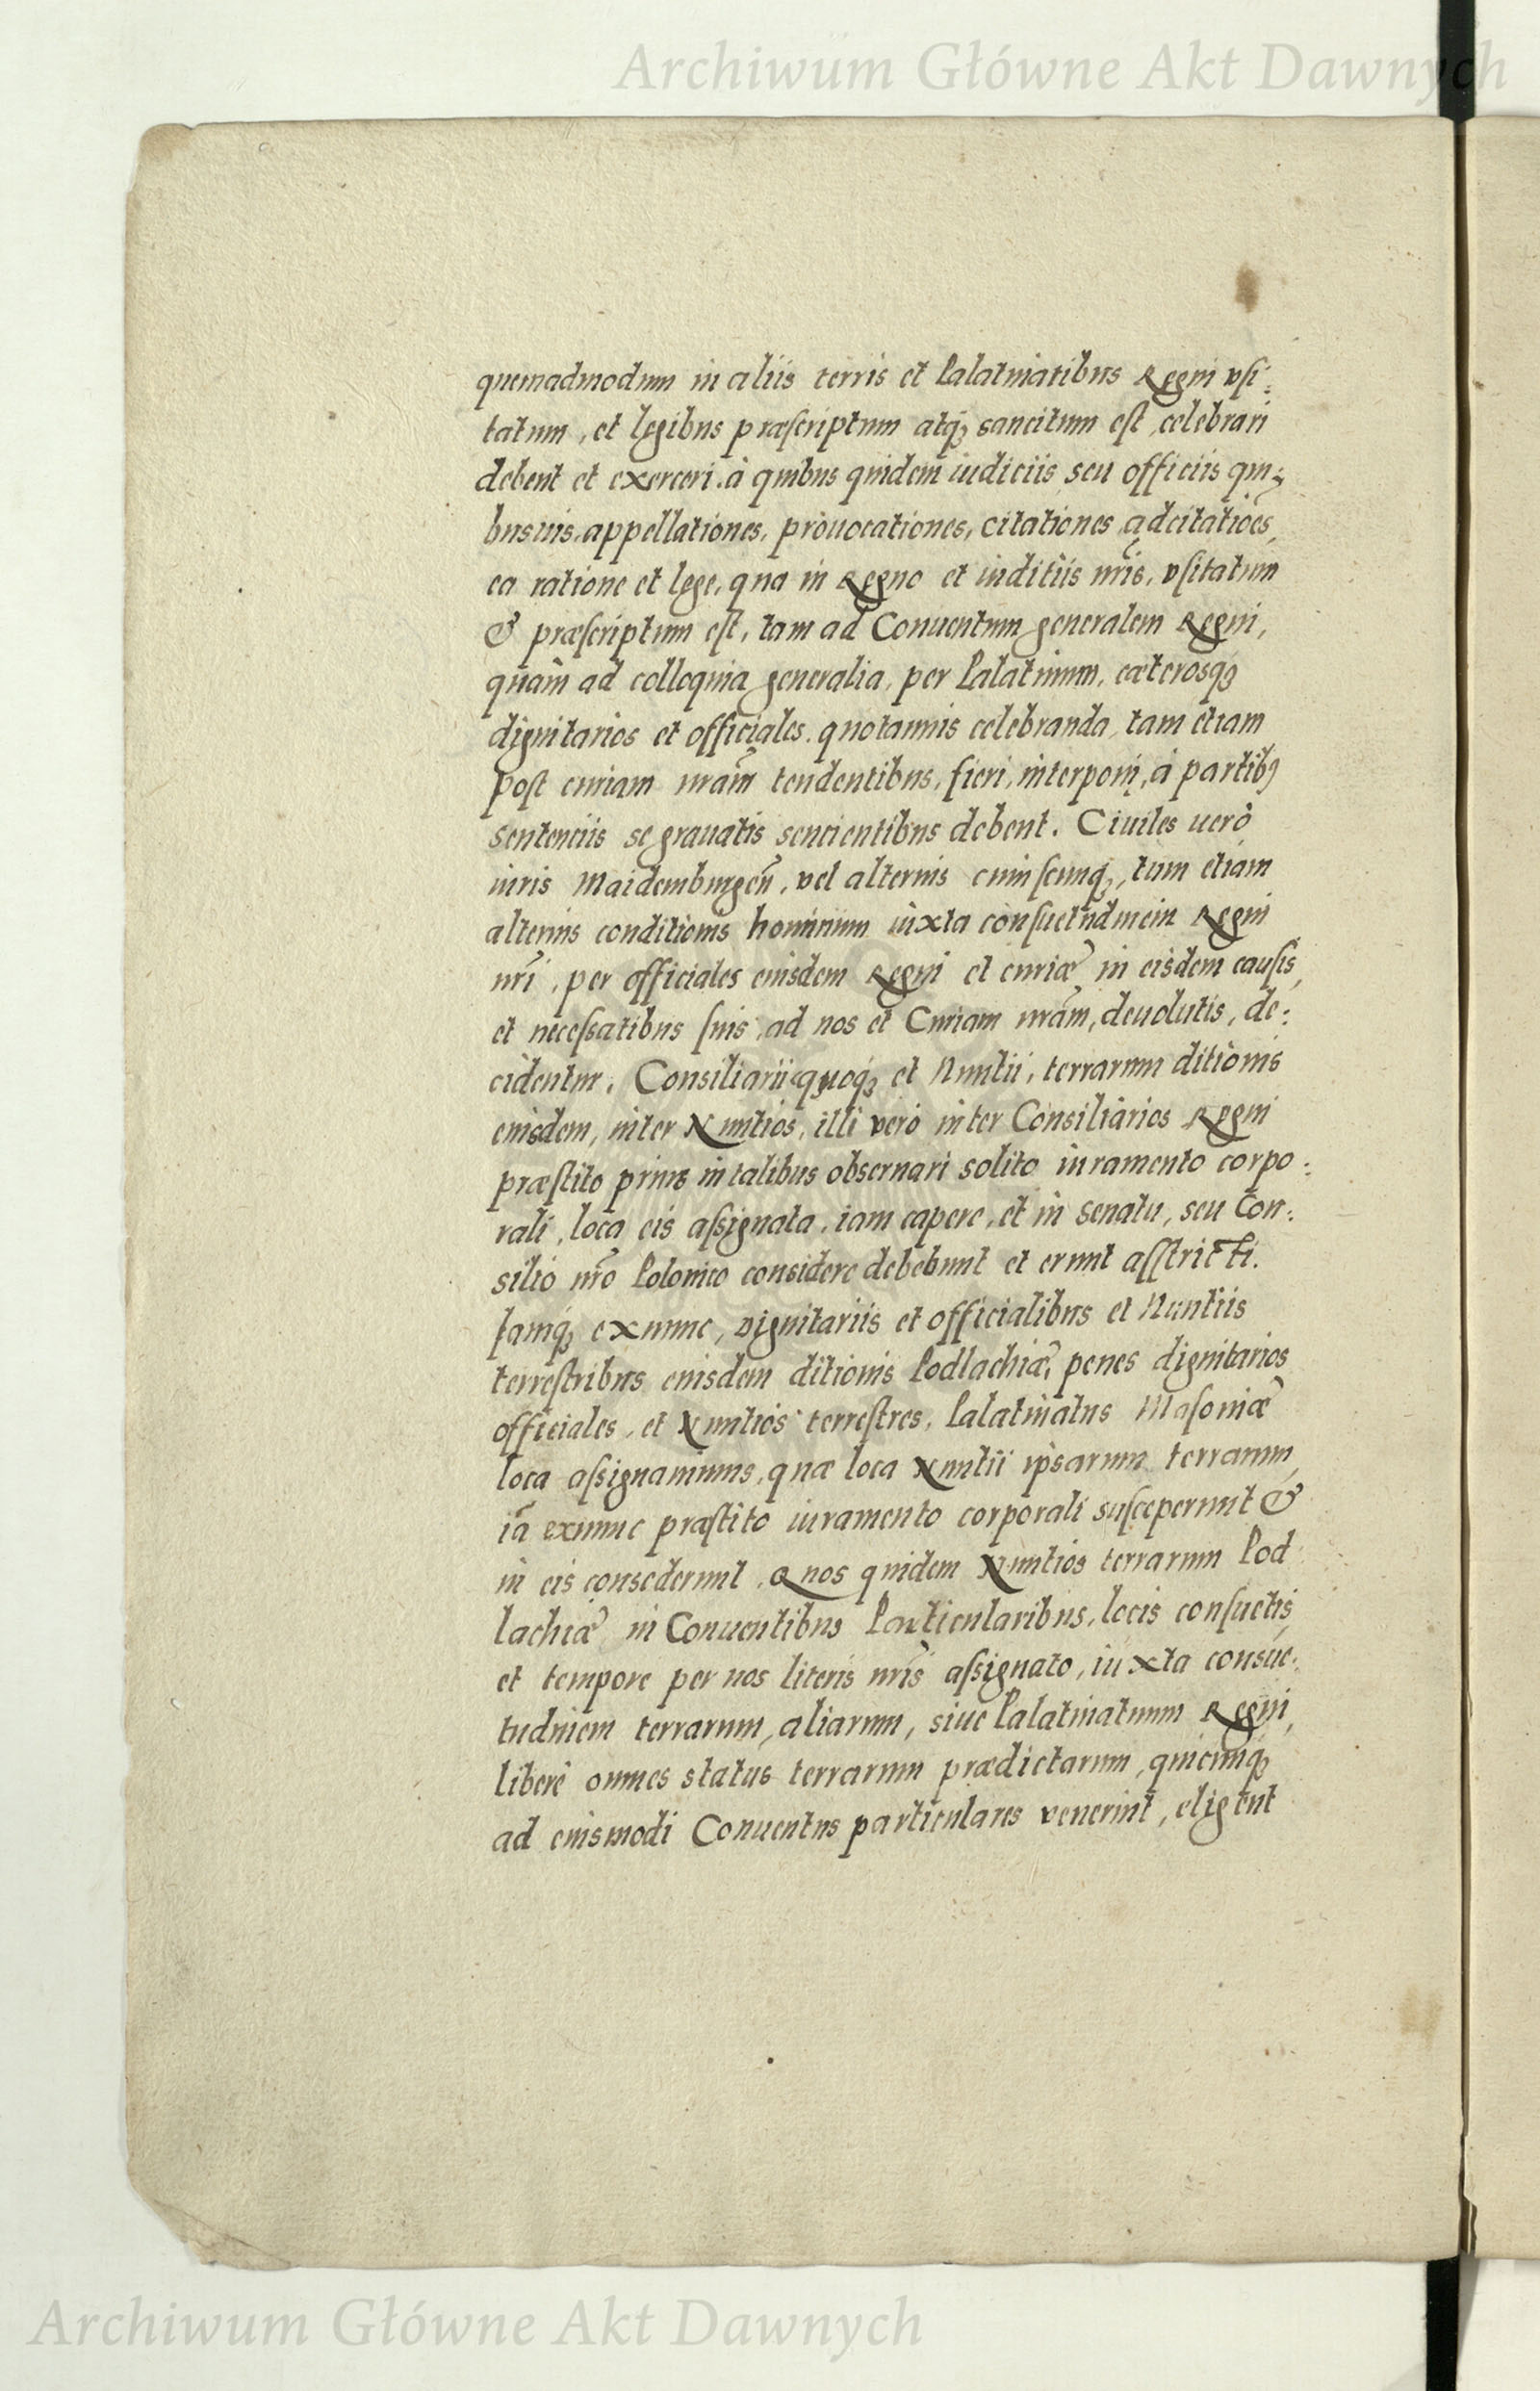 Archiwum Główne Akt Dawnych
quemadmodum in aliis terris et Palatinatibus Regni vsi:
tatum, et legibus præscriptum atq3 sancitum est, celebrari
debent et exerceri. à quibus quidem iudiciis seu officiis qui:
busuis, appellationes, prouocationes, citationes adcitatiões,
ea ratione et lege, qua in Regno et iuditiis nr̃is, vsitatum
& præscriptum est, tam ad Conuentum generalem Regni,
quàm ad colloquia generalia, per Palatinum, cæterosq3
dignitarios et officiales. quotannis celebranda, tam etiam
post curiam nrãm tendentibus, fieri, interponi, à partib9
sentenciis se grauatis sencientibus debent. Ciuiles uerò
iuris Maidemburgeñ, vel alterius cuiuscunq3, tum etiam
alterius conditionis hominum iuxta consuetudinem Regni
nr̃i, per officiales eiusdem Regni et curiæ in eisdem causis,
et necessatibus suis, ad nos et Curiam nrãm, deuolutis, de:
cidentur. Consiliarii quoq3 et Nuntii, terrarum ditionis
eiusdem, inter Nuntios, illi verò inter Consiliarios Regni
præstito prius in talibus obseruari solito iuramento corpo:
rali, loca eis assignata, iam capere, et in senatu, seu Con:
silio nr̃o Polonico considere debebunt et erunt asstricti.
Iamq3 exnunc, dignitariis et officialibus et Nuntiis
terrestribus eiusdem ditionis Podlachiæ, penes dignitarios
officiales, et Nuntios terrestres, Palatinatus Masoniæ
loca assignauimus, quæ loca Nuntii ipsarum terrarum,
iã exnunc præstito iuramento corporali susceperunt &
in eis consederunt. Quos quidem Nuntios terrarum Pod
lachiæ in Conuentibus Particularibus, locis consuetis,
et tempore per nos literis nr̃is assignato, iuxta consue:
tudinem terrarum, aliarum, siue Palatinatuum Regni,
liberè omnes status terrarum prædictarum, quicunq3
ad eiusmodi Conuentus particulares venerint, eligent
Archiwum Główne Akt Dawnych